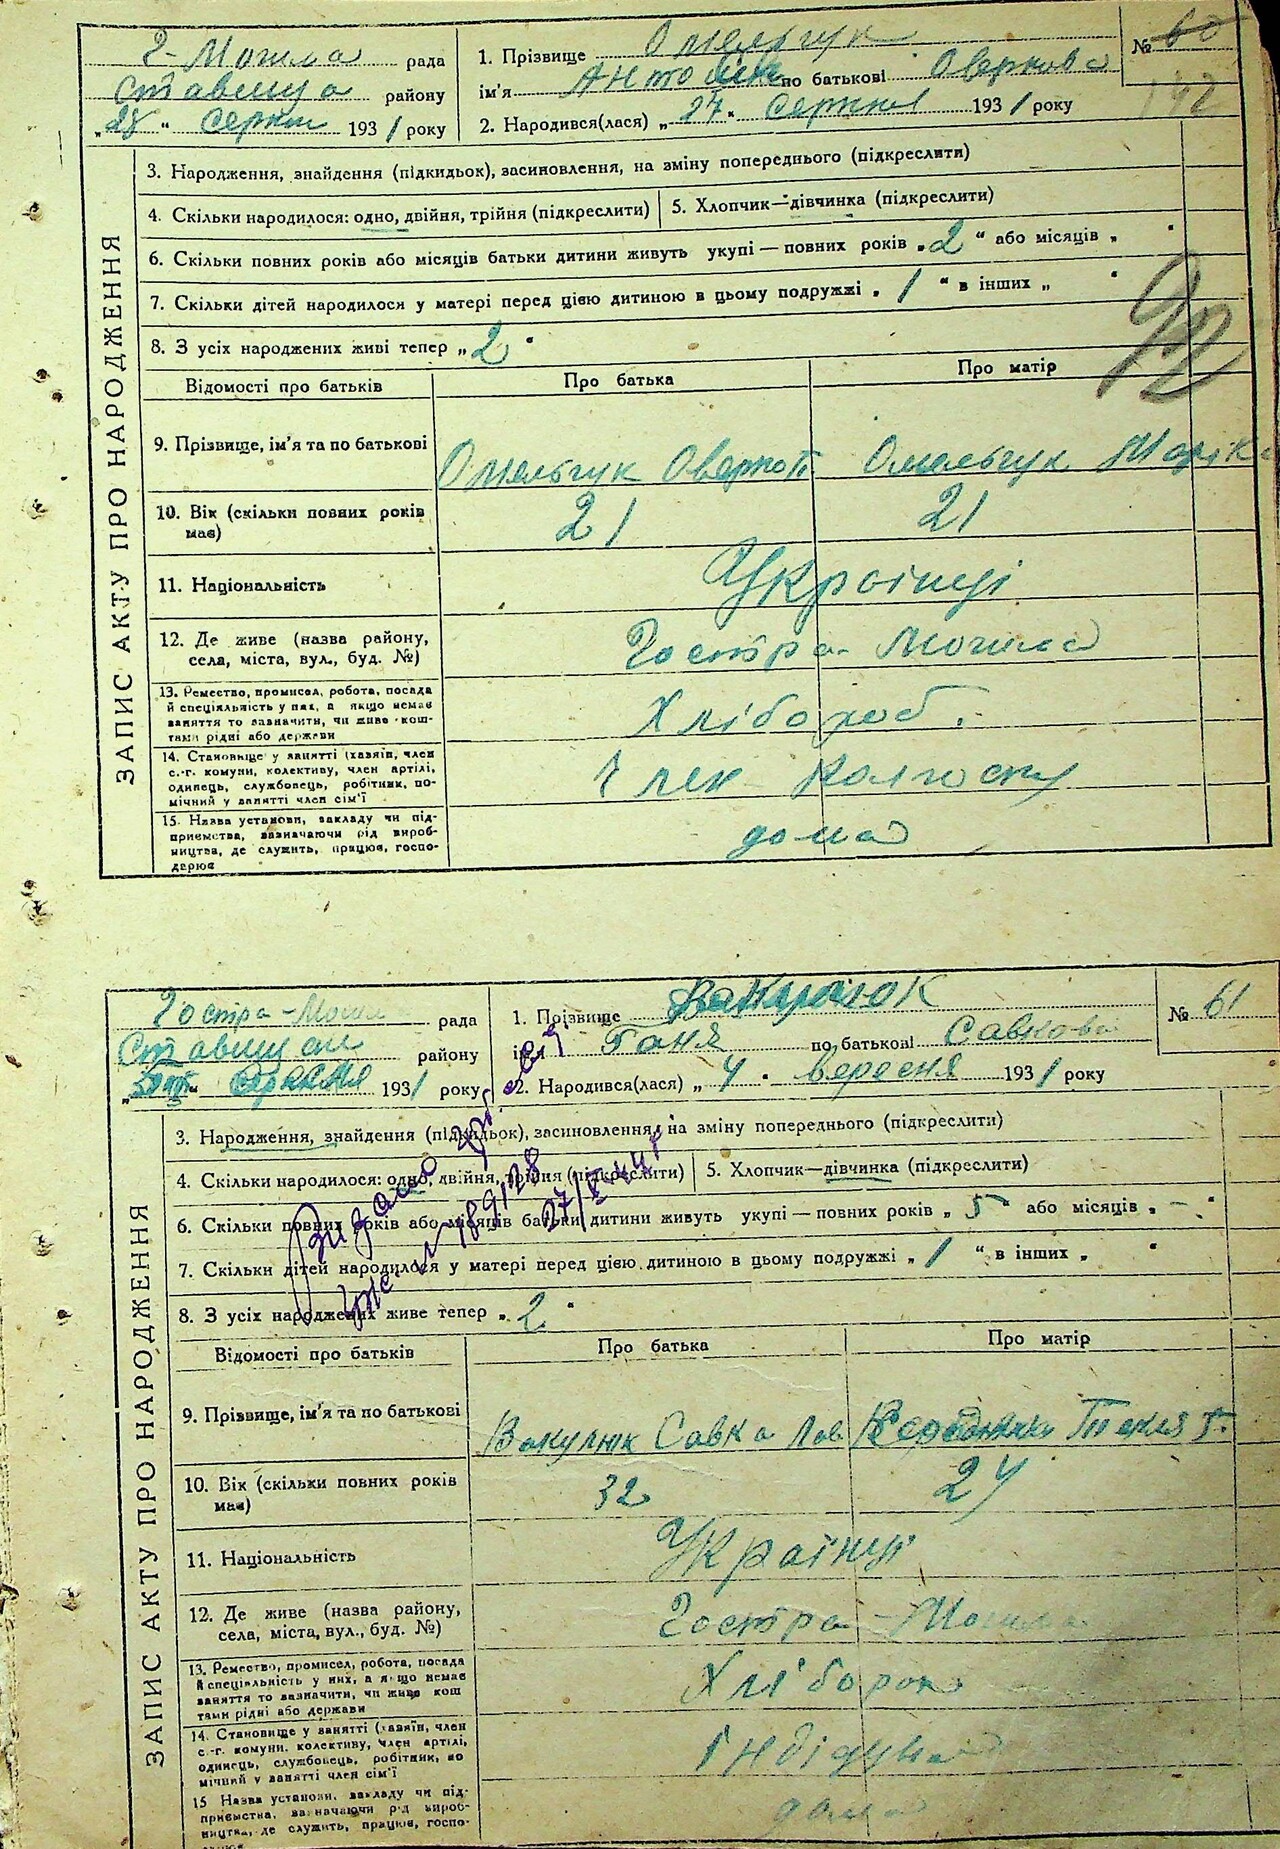 Г-Могила рада
Ставища району
„28“ серпня 1931 року
1. Прізвище Омельчук
ім'я Антоніна по батькові Оверкова
2. Народився(лася) „27“ серпня 1931 року
№ 60
142
ЗАПИС АКТУ ПРО НАРОДЖЕННЯ
3. Народження, знайдення (підкидьок), засиновлення, на зміну попереднього (підкреслити)
4. Скільки народилося: одно, двійня, трійня (підкреслити)
5. Хлопчик—дівчинка (підкреслити)
6. Скільки повних років або місяців батьки дитини живуть укупі — повних років „2“ або місяців „ “
7. Скільки дітей народилося у матері перед цією дитиною в цьому подружжі „1“ в інших „ “
8. З усіх народжених живі тепер „2“
Відомості про батьків
Про батька
Про матір
9. Прізвище, ім'я та по батькові
Омельчук Оверко П.
Омельчук Марік
10. Вік (скільки повних років має)
21
21
11. Національність
Українці
12. Де живе (назва району, села, міста, вул., буд. №)
Гостра-Могила
13. Ремество, промисел, робота, посада
й спеціяльність у них, а якщо немає
заняття то зазначити, чи живе кош-
тами рідні або держави
Хлібороб.
14. Становище у занятті (хазяїн, член
с.-г. комуни, колективу, член артілі,
одинець, службовець, робітник, по-
мічний у занятті член сім'ї
Член колгоспу
15. Назва установи, закладу чи під-
приємства, зазначаючи рід вироб-
ництва, де служить, працює, госпо-
дарює
дома
Гостра-Могила рада
Ставищан району
серпня 1931 року
1. Прізвище Вакулюк
ім'я Ганя по батькові Савкова
2. Народився(лася) „4“ вересня 1931 року
№ 61
ЗАПИС АКТУ ПРО НАРОДЖЕННЯ
3. Народження, знайдення (підкидьок), засиновлення, на зміну попереднього (підкреслити)
4. Скільки народилося: одно, двійня, трійня (підкреслити)
5. Хлопчик—дівчинка (підкреслити)
6. Скільки повних років або місяців батьки дитини живуть укупі — повних років „5“ або місяців „–“
7. Скільки дітей народилося у матері перед цією дитиною в цьому подружжі „1“ в інших „ “
8. З усіх народжених живе тепер „2“
Видано
189128
Відомості про батьків
Про батька
Про матір
9. Прізвище, ім'я та по батькові
Вакулюк Савка Лав
Текля Г.
10. Вік (скільки повних років має)
32
24
11. Національність
Українці
12. Де живе (назва району, села, міста, вул., буд. №)
Гостра-Могила
13. Ремество, промисел, робота, посада
й спеціяльність у них, а якщо немає
заняття то зазначити, чи живе кош
тами рідні або держави
Хлібороб
14. Становище у занятті (хазяїн, член
с.-г. комуни, колективу, член артілі,
одинець, службовець, робітник, по
мічний у занятті член сім'ї
Індідуал
15 Назва установи, закладу чи під-
приємства, зазначаючи рід вироб-
ництва, де служить, працює, госпо-
дома